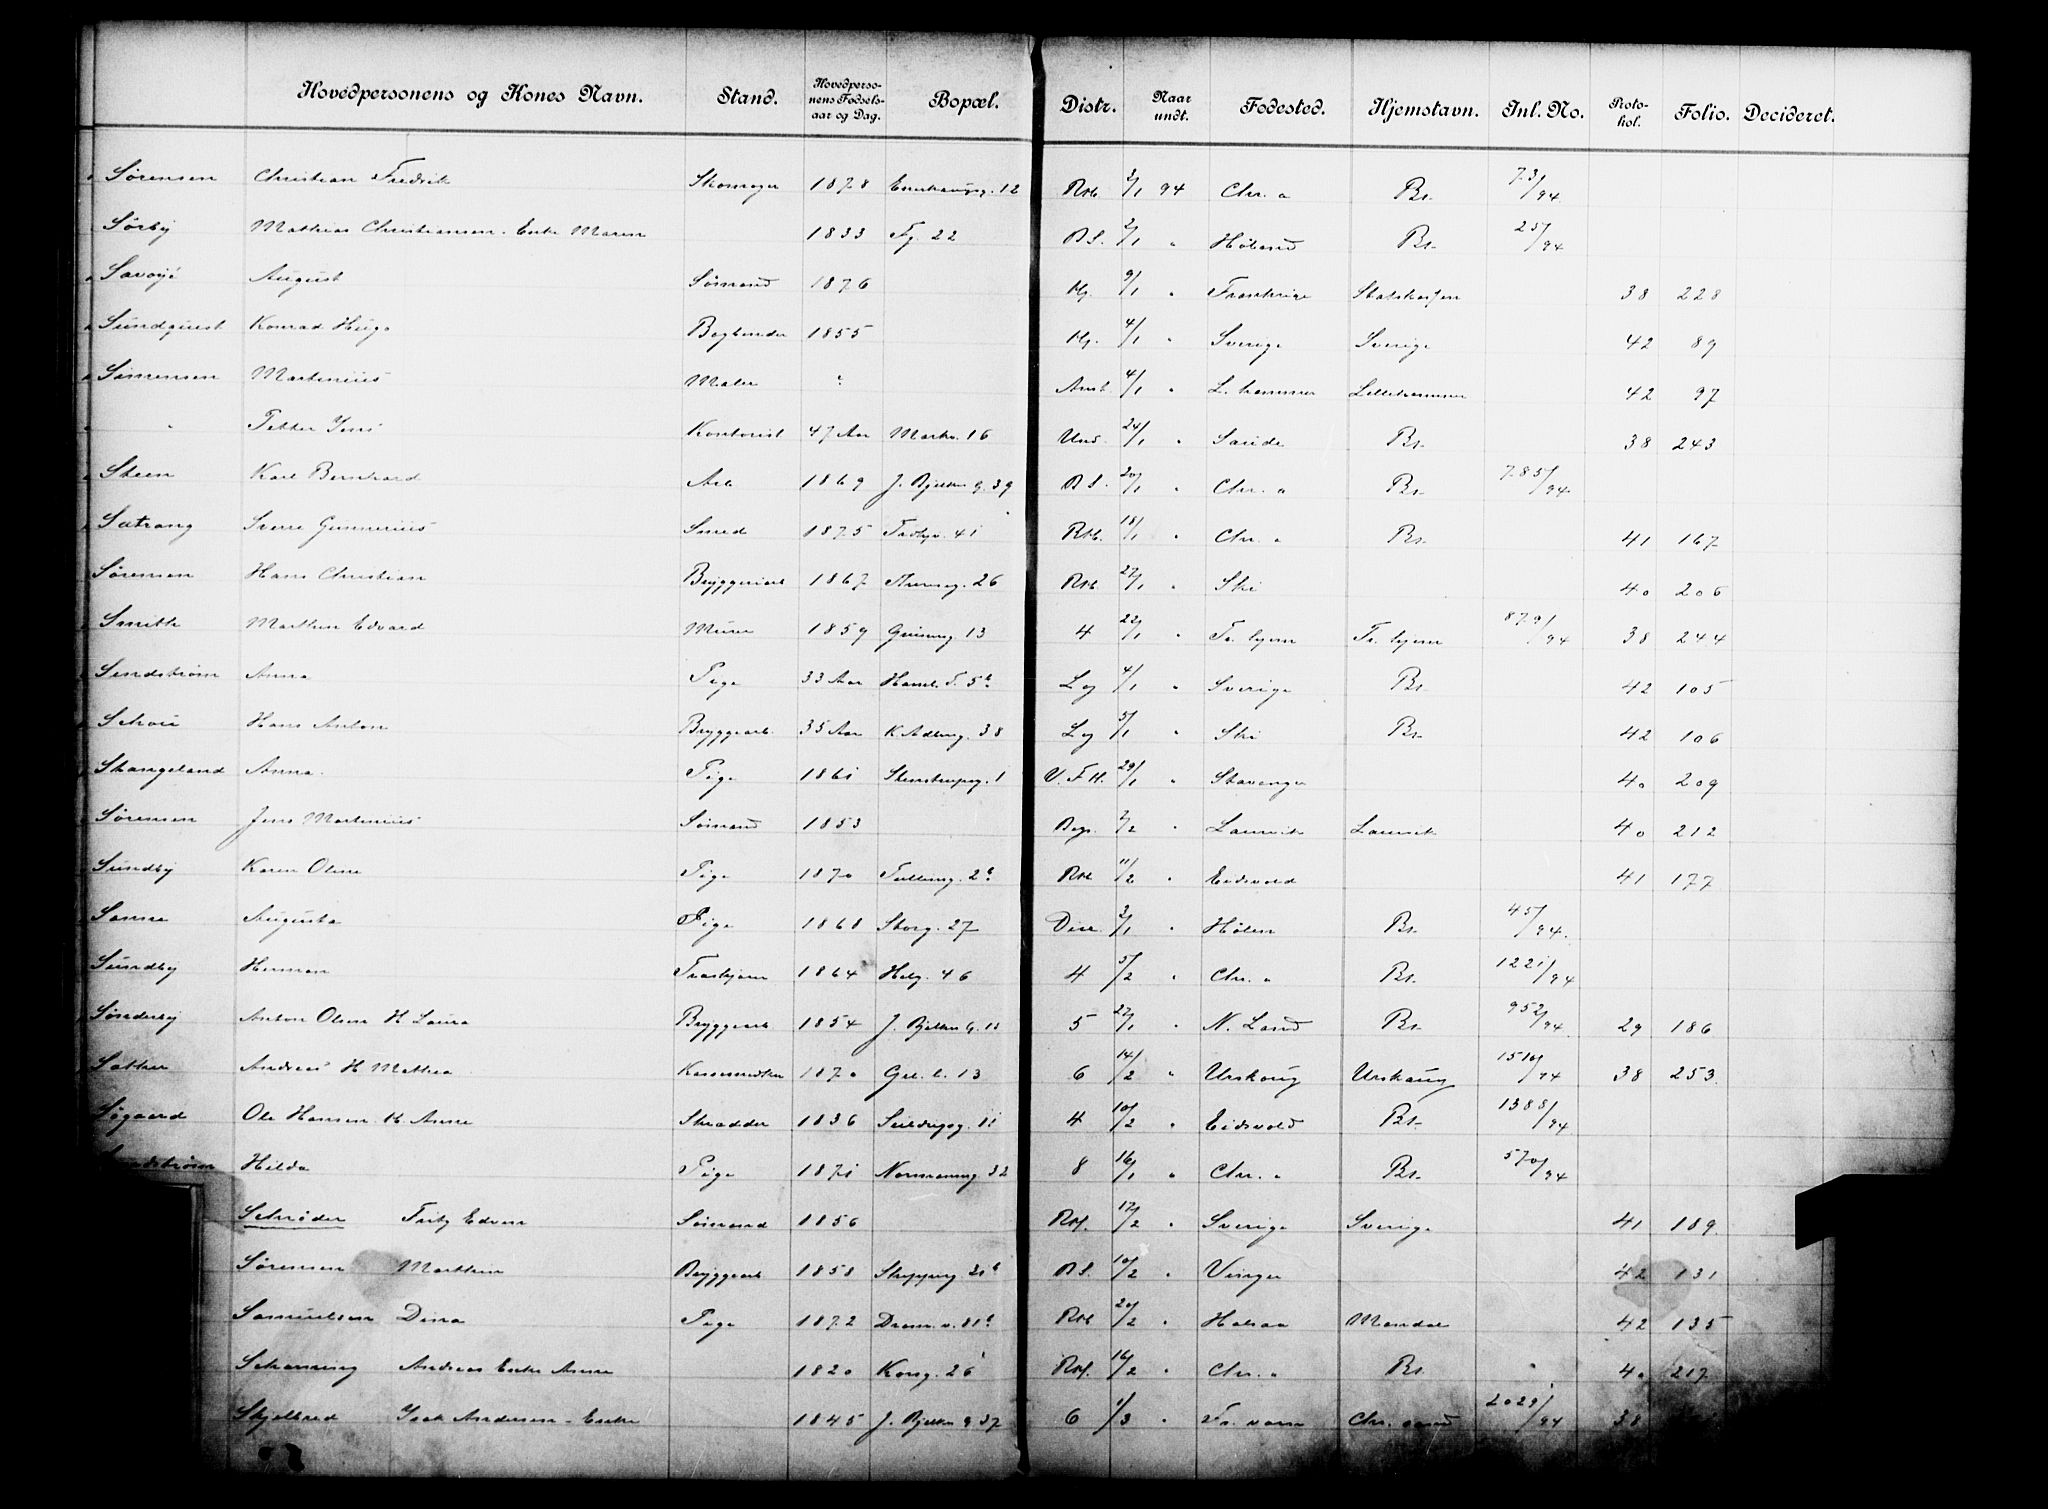 Hovedpersonens og Kones Navn. Stand. Hovedperso-nens Fødsels-aar og Dag. Bopæl. Distr. Naar undt. Fødested. Hjemstavn. Jnl. No. Proto-kol. Folio. Decideret.
Sørensen Christian Fredrik Skomager 1878 12 Rst. 3/1 94 Chr.a Bs. 73/94
Sørby Mathias Christiansen Enke Maren 1833 Fj. 22 B S. 2/1 " Høland Bs. 25/94
Savoyé August Sømand 1876 Hj. 9/1 " Frankrige Statskassen 38 228
Sundquist Konrad Hugo Bogbinder 1855 Hj. 4/1 " Sverige Sverige 42 89
Simensen Martinius Maler " 4/1 " L.hammer Lillehammer 42 97
" Petter Jens Kontorist 47 Aar Markv. 16 Und. 24/1 " Bs. 38 243
Steen Karl Bernhard Arb 1869 J. Bjelkes g. 39 B S. 20/1 " Chr.a Bs. 785/94
Sætrang Sverre Gunnerius Smed 1875 41 Rst. 18/1 " Chr.a Bs. 41 167
Sørensen Hans Christian Bryggeriarb 1867 26 Rst. 27/1 " Ski 40 206
Smith Marthin Edvard Murer 1859 13 4 22/1 " Tr.hjem Tr.hjem 879/94 38 244
Sundstrøm Anna Pige 33 Aar Hamb. T. 5b Lg 4/1 " Sverige Bs. 42 105
Schou Hans Anton Bryggearb. 35 Aar 38 Lg 5/1 " Ski Bs. 42 106
Skangeland Anna Pige 1861 Stenstrupg. 1 V. F. H. 29/1 " Stavanger 40 209
Sørensen Jens Martinius Sømand 1853 Bogs. 2/2 " Laurvik Laurvik 40 212
Sundby Karen Oline Pige 1870 Tulling. 2b Rst 11/2 " Eidsvold 41 177
Sanne Augusta Pige 1868 Storg. 27 2/1 " Hølen Bs. 45/94
Sundby Herman 1864 Helg. 46 4 5/2 " Chr.a Bs. 1221/94
Sønderby Anton Olsen H Laura Bryggearb 1854 J. Bjelkes G. 11 5 27/1 " N. Land Bs. 952/94 29 186
Sæther Andreas H Mathea 1870 13 6 14/2 " Urskoug Urskoug 1516/94 38 253
Søgaard Ole Hansen H. Anne Skrædder 1836 11 4 10/2 " Eidsvold Bs. 1388/94
Hilda Pige 1871 Normanng 32 8 16/1 " Chr.a Bs. 570/94
Schrøder Fritz Edvin Sømand 1856 Rst. 17/2 " Sverige Sverige 41 189
Sørensen Marthin Bryggearb 1858 B S. 10/2 " Vinger 42 131
Samuelsen Dina Pige 1872 Dram.v. 81b Rst 20/2 " Halsaa Mandal 42 135
Schanning Andreas Enke Anne 1820 Kong. 26 Rst. 16/2 " Chr.a Bs. 40 217
Skjelbred Isak Andersen - Enke 1845 J. Bjelkes g 37 6 1/3 " Chr.sand 2029/94 38